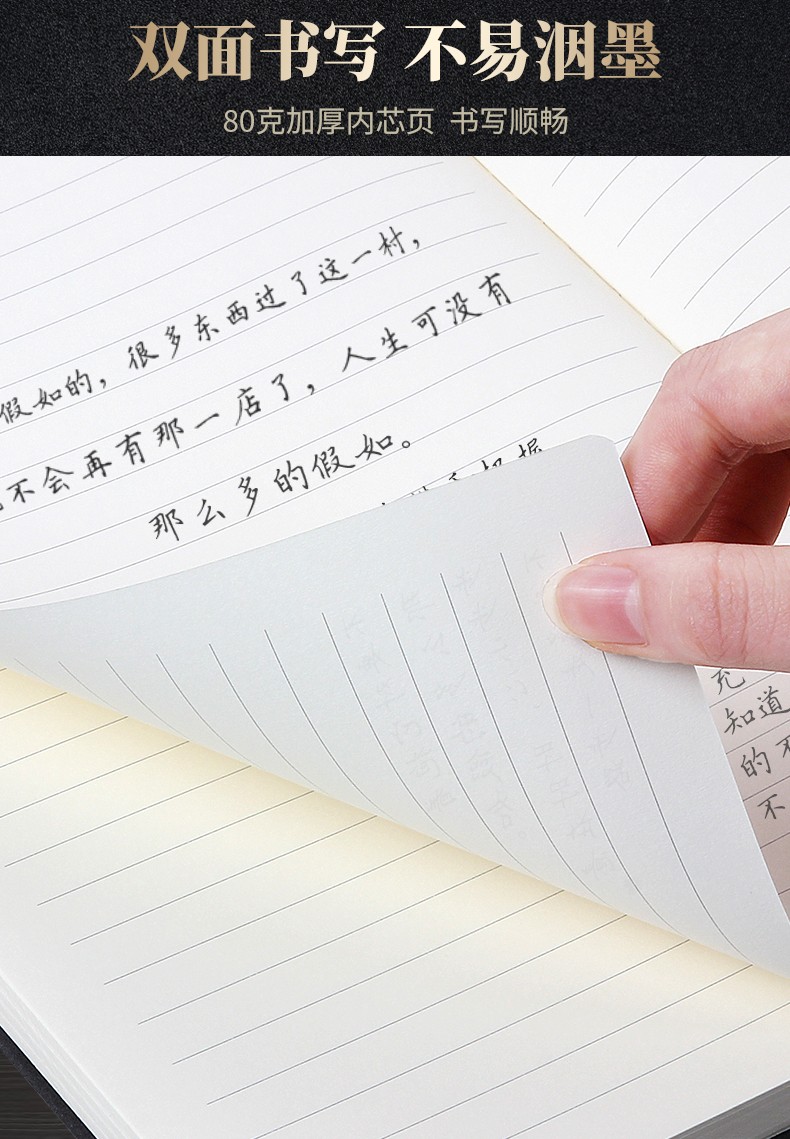 双面书写 不易洇墨
80克加厚内芯页 书写顺畅
假如的，很多东西过了这一村，
不会再有那一店了，人生可没有
那么多的假如。
充
知道
的不
不